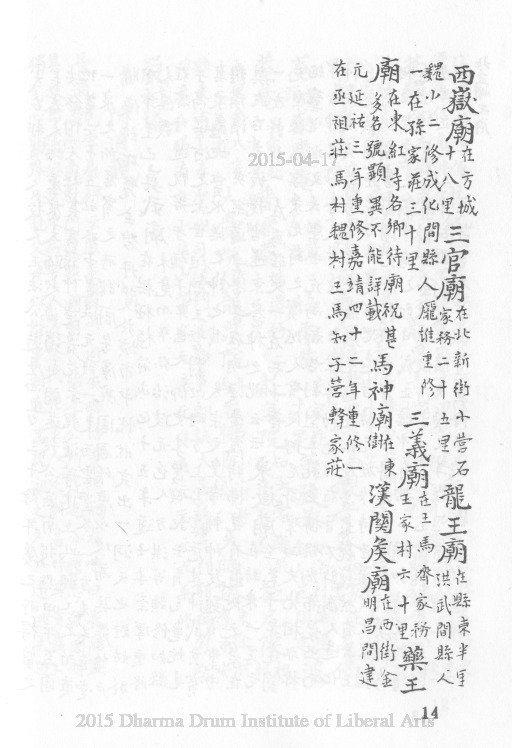 西嶽廟在方城十八里三官廟在北新街小營石家務二十五里龍王廟在縣東半里洪武間縣人
魏小二修成化間縣人龐堆重修一在孫家莊三十里三義廟在王馬齊家務王家村六十里藥王
廟在東紅寺各鄉待廟祝甚多名號顯異不能詳載馬神廟在東街漢關侯廟在西街金明昌間建
元延祐三年重修嘉靖四十二年重修一在丞祖莊馬村魏村三馬知子營韓家莊
2015-04-17
14
2015 Dharma Drum Institute of Liberal Arts